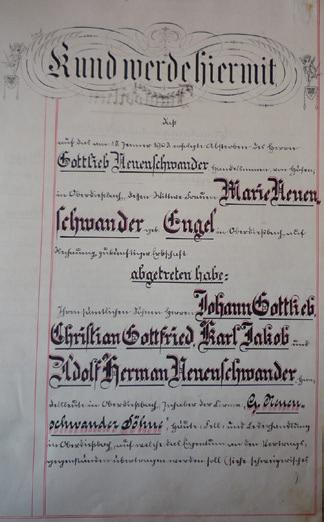 Kund werde hiermit
Daß
auf das am 18. Jenner 1902 erfolgte Absterben des Herrn
Gottlieb Neuenschwander Handelsmann, von Höfen,
in Oberdießbach, dessen Wittwe Frau Marie Neuen,
schwander geb. Engel in Oberdießbach, auf
Rechnung zukünftiger Erbschaft
abgetreten habe:
Ihren sämtlichen Söhnen Herren Johann Gottlieb,
Christian Gottfried, Karl Jakob und
Adolf Herman Neuenschwander, Han,
delsleute in Oberdießbach, Inhaber der Firma „G. Neuen-
schwander Söhne", Häute, Fell- und Lederhandlung
in Oberdießbach, auf welche das Eigentum an den Vertrags,
gegenständen übertragen werden soll (siehe